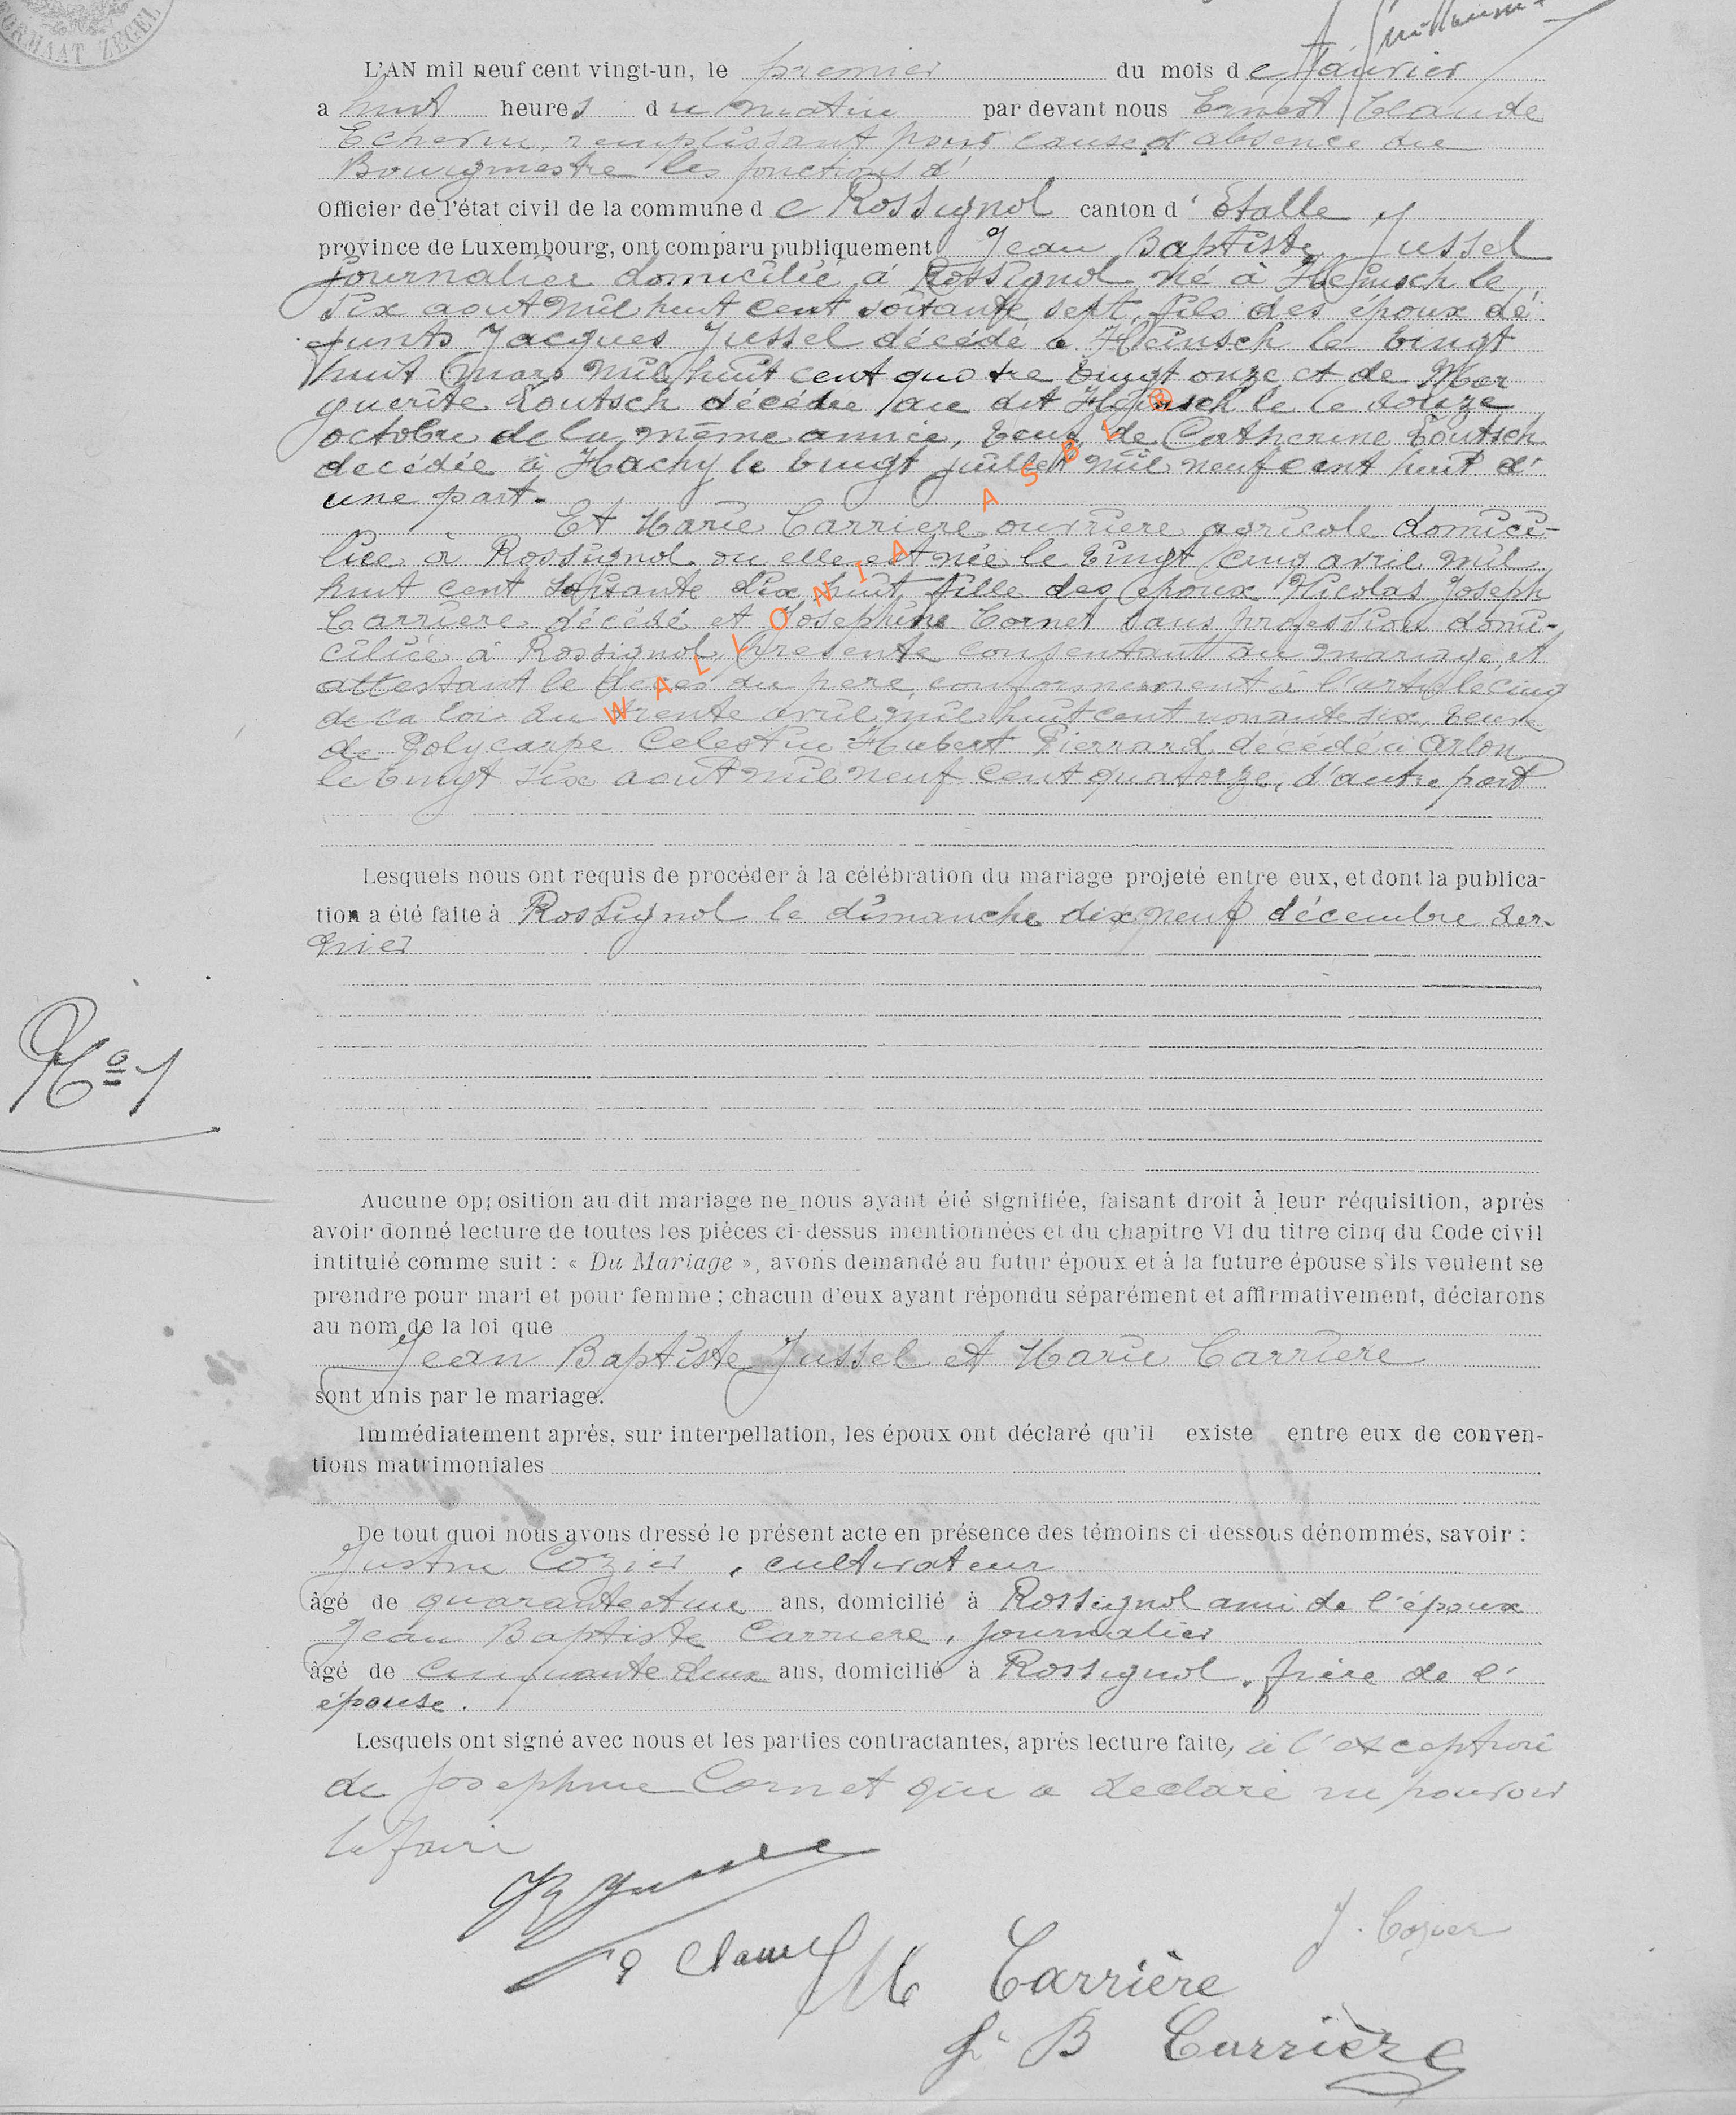 FORMAAT ZEGEL
A Guillaume
L'AN mil neuf cent vingt-un, le premier du mois de Janvier
a huit heures du matin par devant nous Ernest Claude
Echevin, remplissant pour cause d'absence du
Bourgmestre les fonctions d'
Officier de l'état civil de la commune de Rossignol canton d'Etalle
province de Luxembourg, ont comparu publiquement Jean Baptiste Jussel
journalier domicilié à Rossignol né à Heinsch le
six aout mil huit cent soixante sept, fils des époux dé
funts Jacques Jussel décédé à Heinsch le vingt
huit mars mil huit cent quatre vingt onze et de Mar
guerite Loutsch décédée au dit Heinsch le le douze
octobre de la même année, veuf de Catherine Loutsch
decédée à Hachy le vingt juillet mil neuf cent huit d'
une part.
Et Marie Carriere ouvrière agricole domici-
liée à Rossignol ou elle est née le vingt cinq avril mil
huit cent soixante dix huit, fille des époux Nicolas Joseph
Carriere décédé et Josephine Cornet sans profession domi-
ciliée à Rossignol, presente consentant au mariage et
attestant le décès du père conformément à l'article cinq
de la loi du trente avril mil huit cent nonante six, veuve
de Polycarpe Celestin Hubert Pierrard décédé à Arlon
le vingt six aout mil neuf cent quatorze, d'autre part
WALLONIA ASBL ®
Lesquels nous ont requis de procéder à la célébration du mariage projeté entre eux, et dont la publica-
tion a été faite à Rossignol le dimanche dix neuf décembre der-
nier
No 1
Aucune opposition au dit mariage ne nous ayant été signifiée, faisant droit à leur réquisition, après
avoir donné lecture de toutes les pièces ci-dessus mentionnées et du chapitre VI du titre cinq du Code civil
intitulé comme suit : « Du Mariage », avons demandé au futur époux et à la future épouse s'ils veulent se
prendre pour mari et pour femme ; chacun d'eux ayant répondu séparément et affirmativement, déclarons
au nom de la loi que
Jean Baptiste Jussel et Marie Carriere
sont unis par le mariage.
Immédiatement après, sur interpellation, les époux ont déclaré qu'il existe entre eux de conven-
tions matrimoniales
De tout quoi nous avons dressé le présent acte en présence des témoins ci-dessous dénommés, savoir :
Justin Cozier, cultivateur
âgé de quarante et un ans, domicilié à Rossignol ami de l'époux
Jean Baptiste Carriere, journalier
âgé de cinquante deux ans, domicilié à Rossignol, frère de l'
épouse.
Lesquels ont signé avec nous et les parties contractantes, après lecture faite, à l'exception
de Josephine Cornet qui a declaré ne pouvoir
le faire
JB Jussel
J. Cozier
E Claude
M Carrière
J. B Carrière